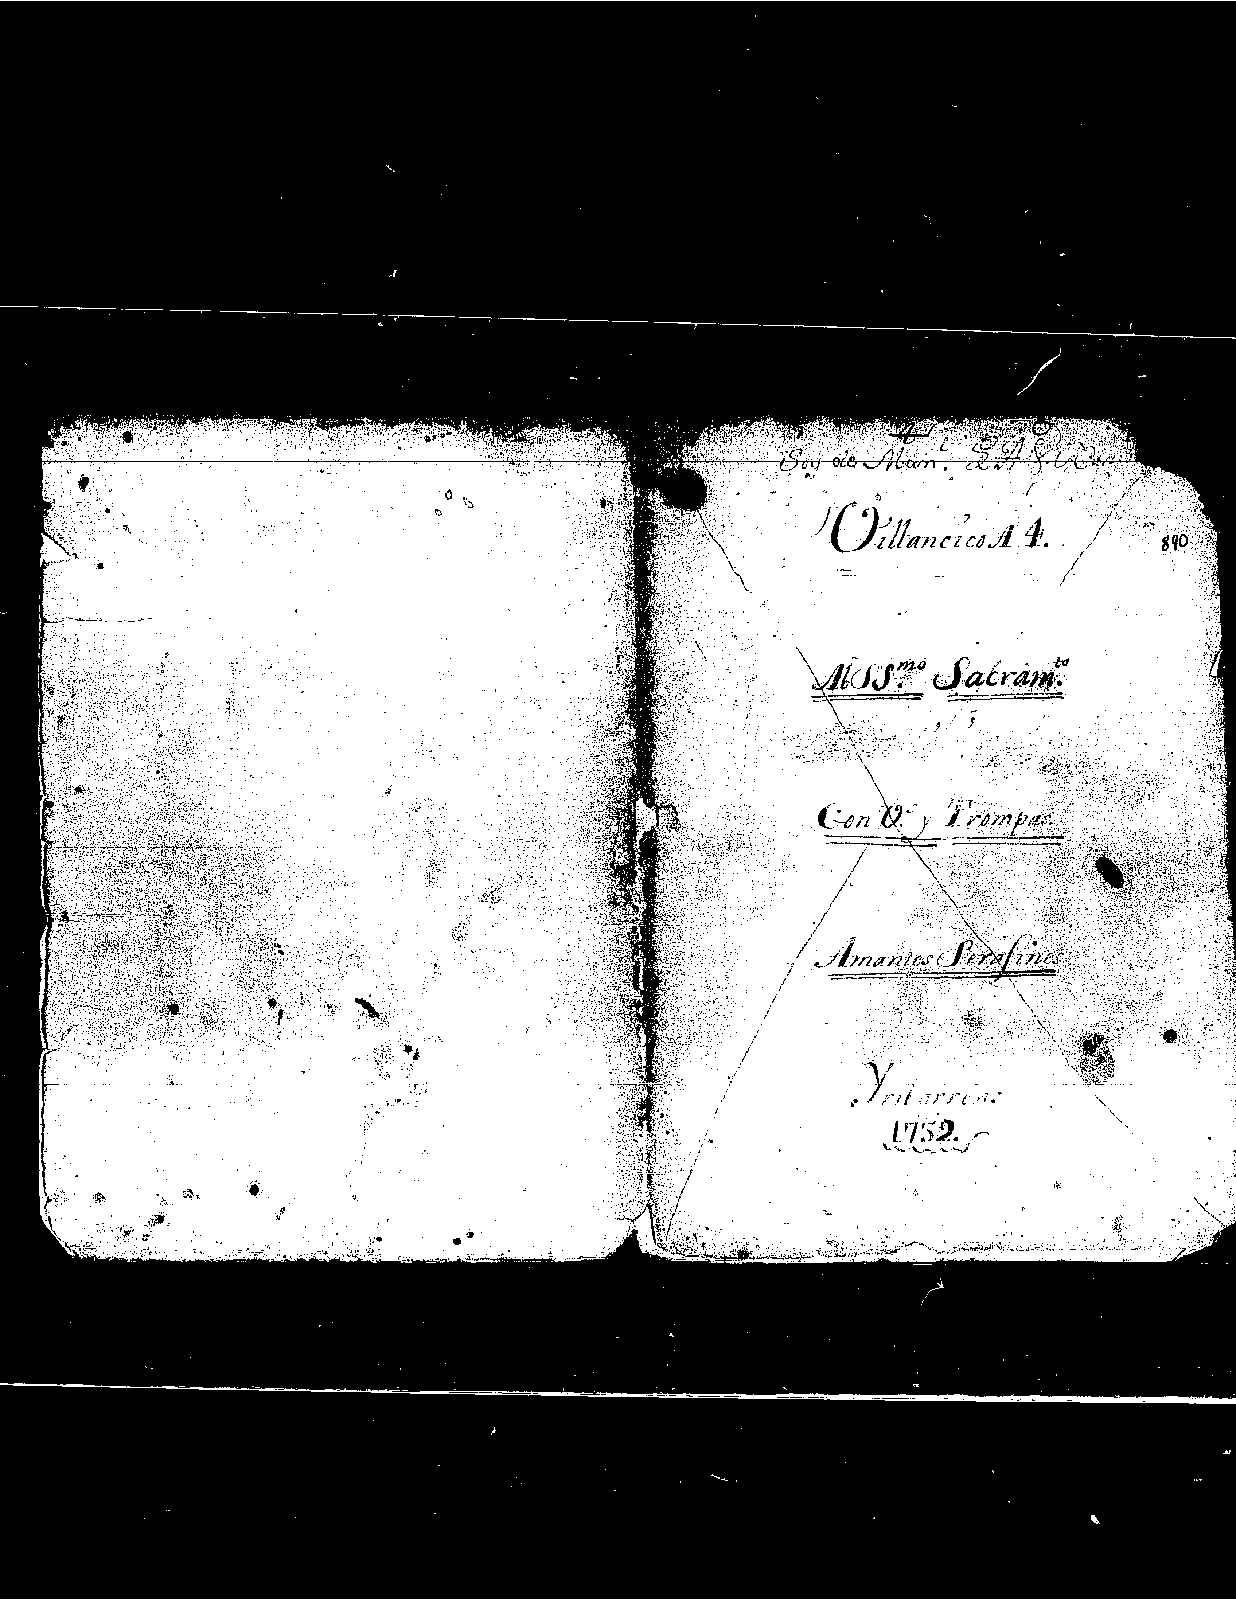 Soy de Man.l
Villancico A 4.
890
Al SS.mo Sacram.to
Con V.s y Trompas.
Amantes Serafines
Yribarren.
1752.